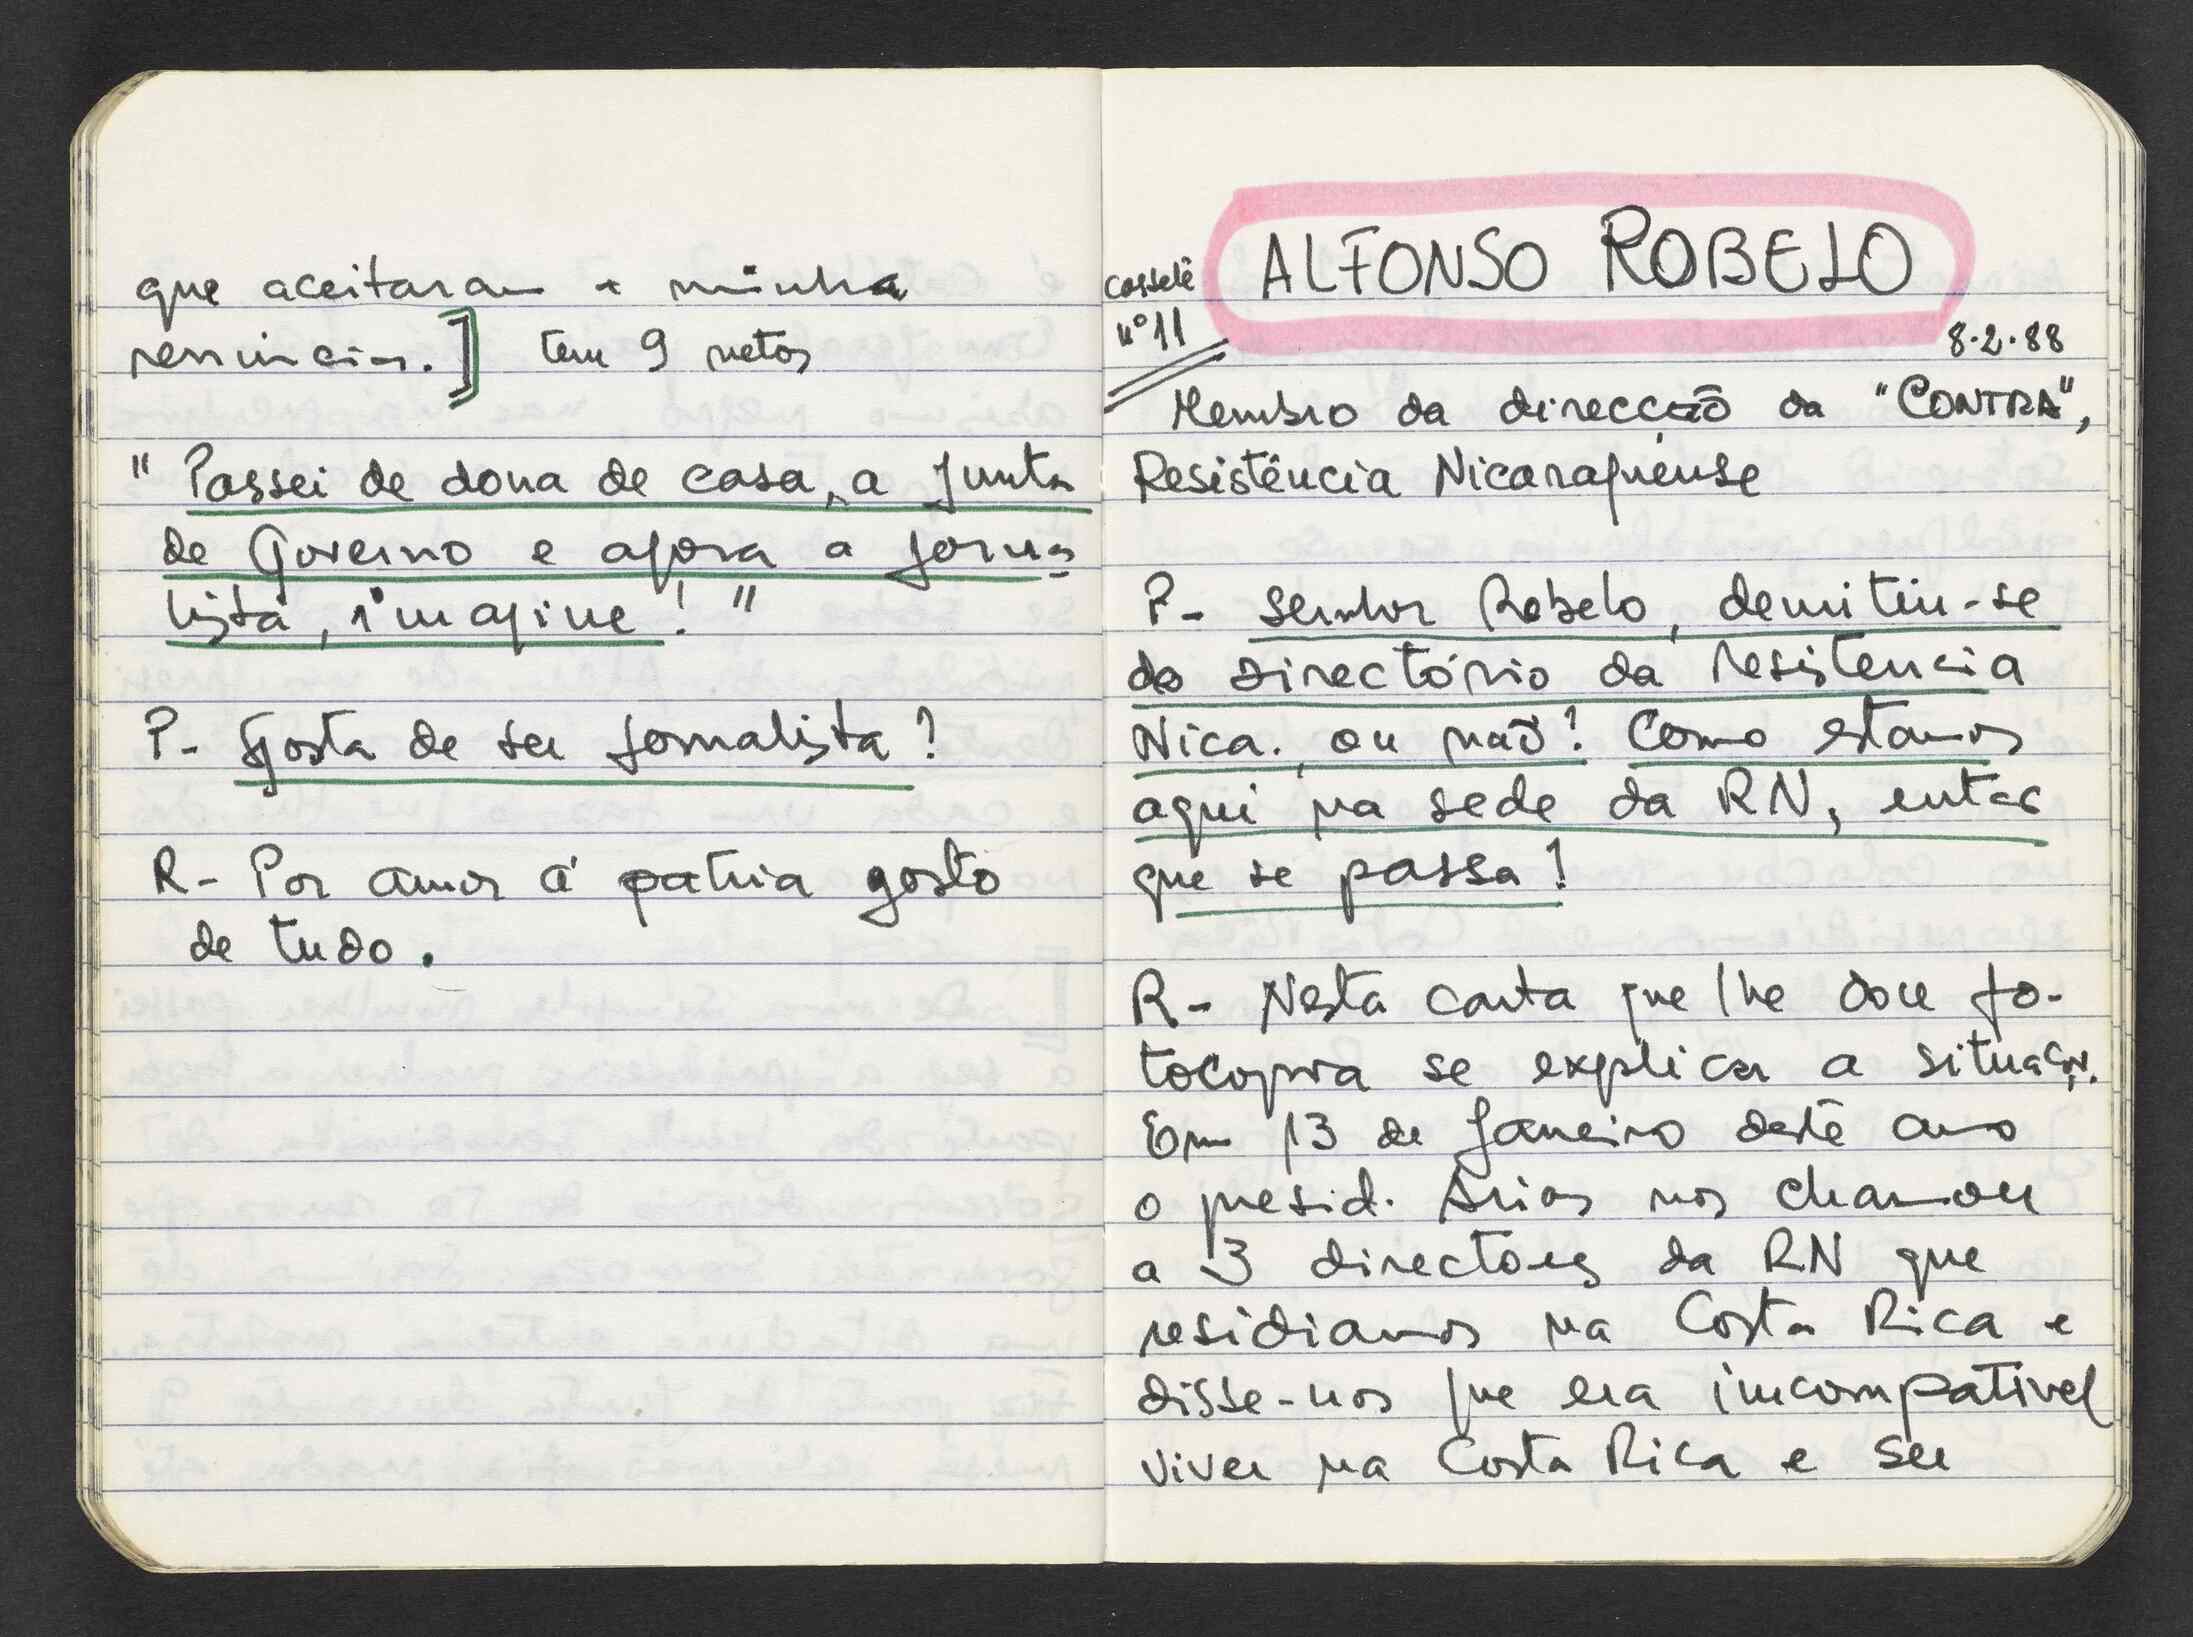 que aceitaram a minha
renúncia.] tem 9 netos
" Passei de dona de casa, a Junta
de Governo e agora a jorna
lista, imagine! "
P- Gosta de ser jornalista?
R- Por amor á patria gosto
de tudo.
ALFONSO ROBELO
cassete
nº 11
8.2.88
Membro da direcção da "CONTRA",
Resistência Nicaraguense
P- Senhor Robelo, demitiu-se
do Directório da resistencia
Nica., ou não? Como estamos
aqui na sede da RN, entao
que se passa?
R- Nesta carta que lhe dou fo-
tocopia se explica a situaçao.
Em 13 de Janeiro deste ano
o presid. Arias nos chamou
a 3 directores da RN que
residiamos na Costa Rica e
disse-nos que era incompativel
viver na Costa Rica e ser